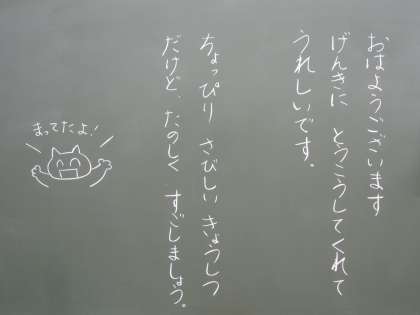 おはようございます
げんきに とうこうしてくれて
うれしいです。
ちょっぴり さびしい きょうしつ
だけど、たのしく すごしましょう。
まってたよ!